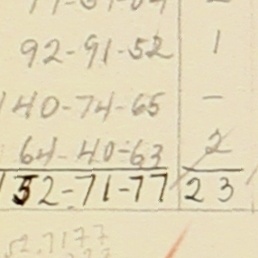 92-91-52 1
140-74-65 -
64-40-63 2
152-71-77 23